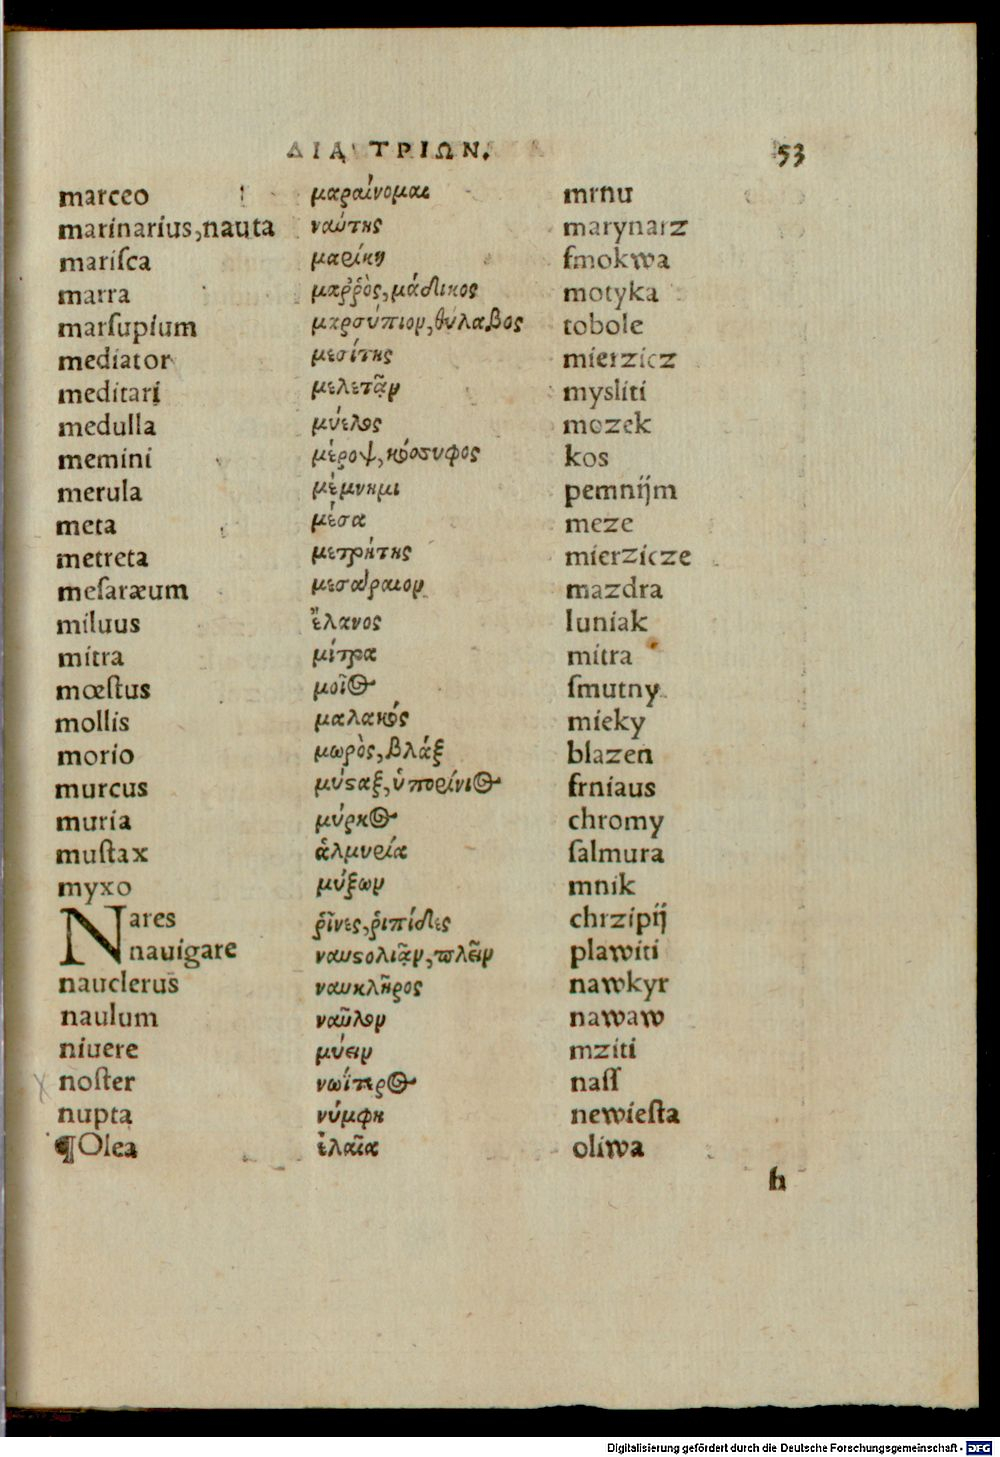 ΔΙΑ ΤΡΙΩΝ. 53
marceo μαραίνομαι mrnu
marinarius,nauta ναύτης marynarz
mariſca μαρίκη ſmokwa
marra μαῤῥὸς,μάδικος motyka
marſupium μαρσύπιον,θύλαβος tobole
mediator μεσίτης mierzicz
meditari μελετᾷν mysliti
medulla μύελος mozek
memini μέροψ,κόσσυφος kos
merula μέμνημι pemnijm
meta μέσα meze
metreta μετρήτης mierzicze
meſaræum μεσάραιον mazdra
miluus ἔλανος luniak
mitra μίτρα mitra
mœſtus μοῖος ſmutny
mollis μαλακός mieky
morio μωρὸς,βλάξ blazen
murcus μύσαξ,ὑπορίνιος frniaus
muria μύρκος chromy
muſtax ἁλμυρία ſalmura
myxo μύξων mnik
Nares ῥῖνες,ῥιπίδες chrzipij
nauigare ναυσολιᾷν,πλεῖν plawiti
nauclerus ναυκλῆρος nawkyr
naulum ναῦλον nawaw
niuere μύειν mziti
noſter νωΐτερος naſſ
nupta νύμφη newieſta
¶Olea ἐλαῖα oliwa
h
Digitalisierung gefördert durch die Deutsche Forschungsgemeinschaft - DFG